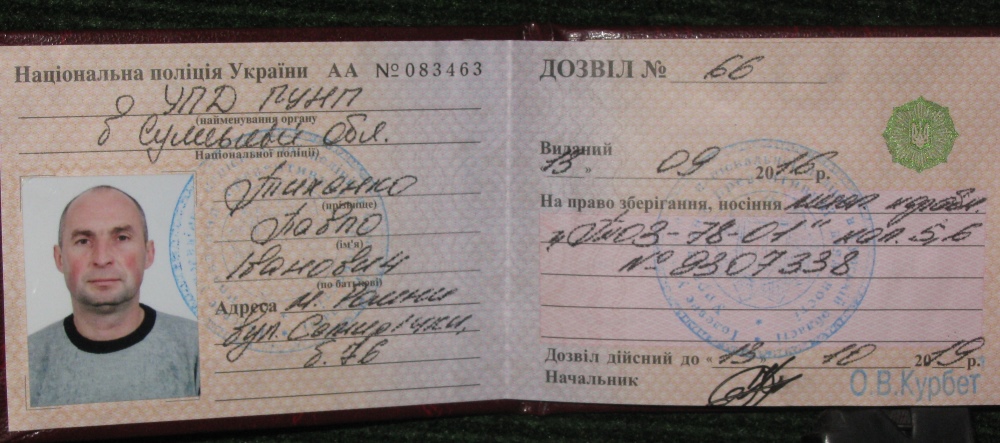 Національна поліція України АА № 083463
УПД ГУНП
(найменування органу
в Сумській обл.
Національної поліції)
(прізвище)
Павло
(ім'я)
Іванович
(по батькові)
Адреса м. Ромни
вул.
б. 76
ДОЗВІЛ № 66
Виданий
13 » 09 2016 р.
На право зберігання, носіння мисл. карабін
03-78-01" кал. 5,6
№ 9307338
Дозвіл дійсний до « 13 » 10 2019 р.
Начальник
О.В.Курбет